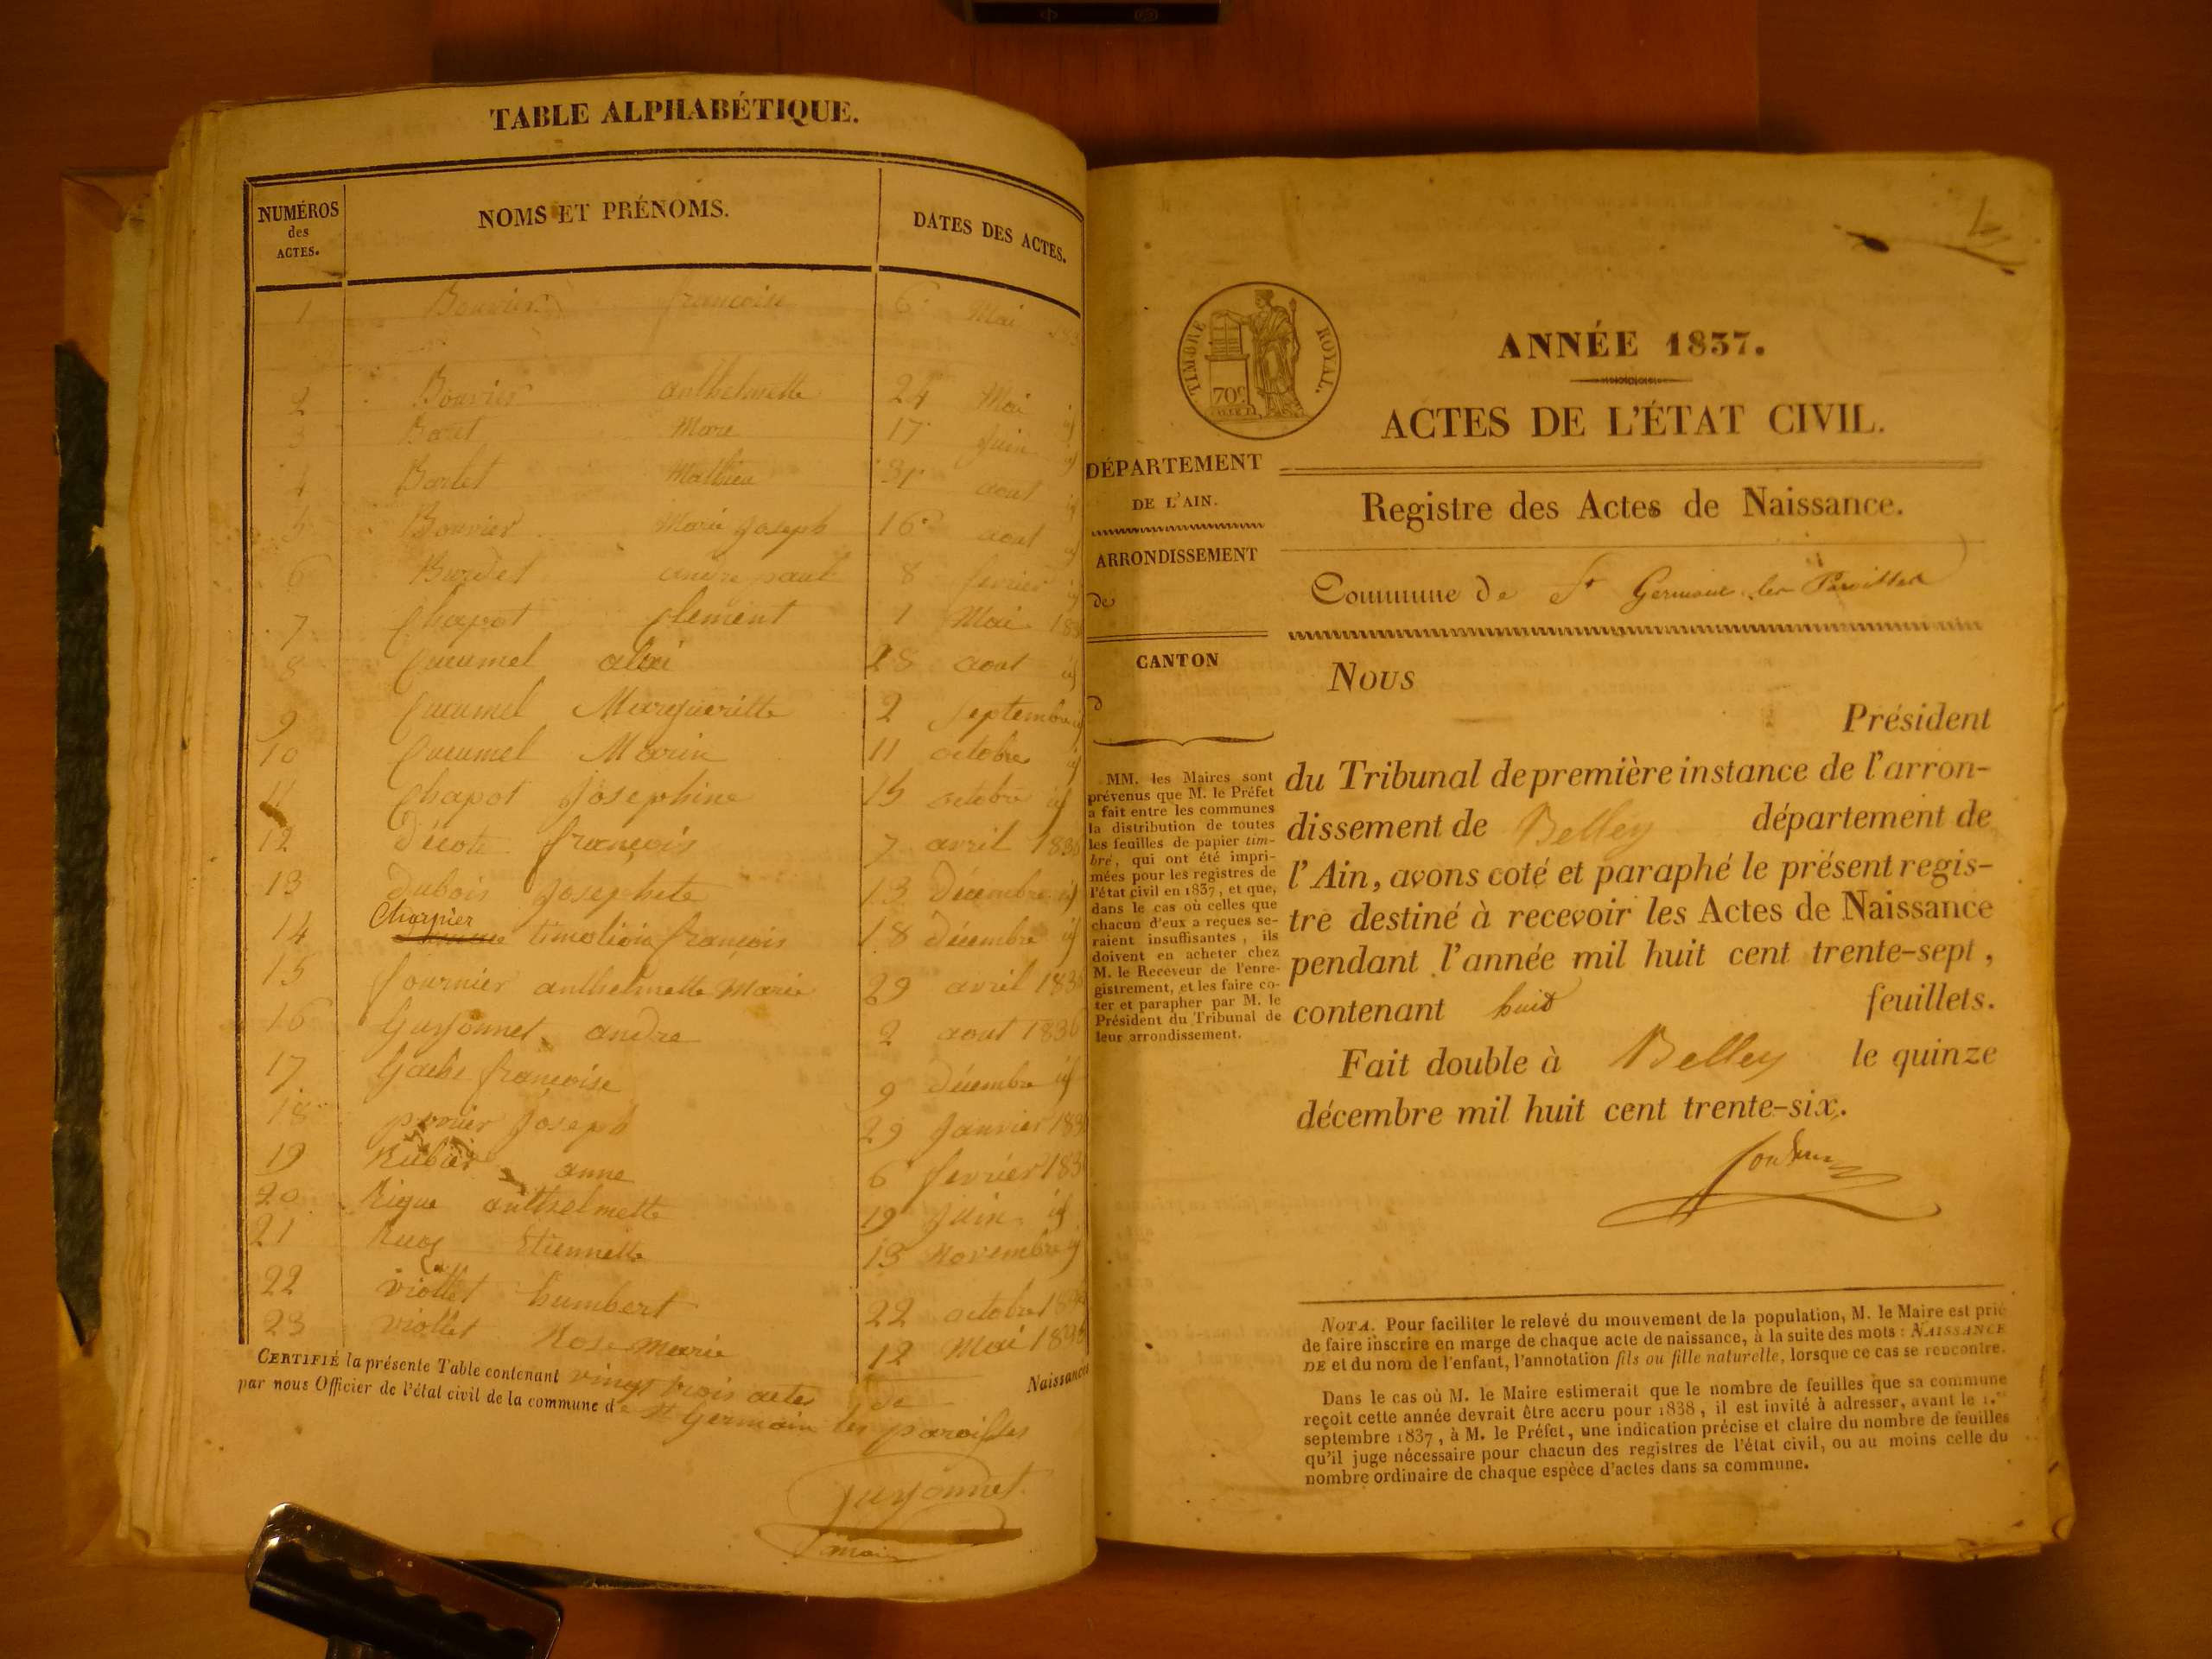 TABLE ALPHABÉTIQUE.
NUMÉROS des ACTES. NOMS ET PRÉNOMS. DATES DES ACTES.
1 Bouvier françoise 6 Mai
2 Bouvier anthelmette 24 Mai
3 Marc 17 Juin
4 Borlet Mathieu 31 aout
5 Bouvier Marie Joseph 16 aout
6 andré paul 8 fevrier
7 Chapot Clement 1 Mai 183
8 Cucumel alexi 28 aout id
9 Cucumel Margueritte 2 Septembre id
10 Cucumel Marin 11 octobre id
11 Chapot Josephine 15 octobre id
12 Décote françois 7 avril 1836
13 Dubois Josephete 13 Décembre id
14 Charpier françois 18 Décembre id
15 fournier anthelmette Marie 29 avril 1836
16 Guyonnet andre 2 aout 1836
17 françoise 9 Décembre id
18 Joseph 29 Janvier 183
19 Rubat anne 6 fevrier 183
20 Rigue anthelmette 19 Juin id
21 Etiennette 13 Novembre id
22 viollet humbert 22 octobre 18
23 viollet Rose Marie 12 Mai 1836
CERTIFIÉ la présente Table contenant vingt trois actes de Naissance
par nous Officier de l'état civil de la commune de St Germain les paroisses
Guyonnet
maire
TIMBRE ROYAL.
70c
ANNÉE 1837.
ACTES DE L'ÉTAT CIVIL.
DÉPARTEMENT
DE L'AIN.
ARRONDISSEMENT
de
CANTON
d
MM. les Maires sont
prévenus que M. le Préfet
a fait entre les communes
la distribution de toutes
les feuilles de papier tim-
bré, qui ont été impri-
mées pour les registres de
l'état civil en 1837, et que,
dans le cas où celles que
chacun d'eux a reçues se-
raient insuffisantes, ils
doivent en acheter chez
M. le Receveur de l'enre-
gistrement, et les faire co-
ter et parapher par M. le
Président du Tribunal de
leur arrondissement.
Registre des Actes de Naissance.
Commune de St Germain les Paroisses
Nous
Président
du Tribunal de première instance de l'arron-
dissement de Belley département de
l'Ain, avons coté et paraphé le présent regis-
tre destiné à recevoir les Actes de Naissance
pendant l'année mil huit cent trente-sept,
contenant huit feuillets.
Fait double à Belley le quinze
décembre mil huit cent trente-six.
NOTA. Pour faciliter le relevé du mouvement de la population, M. le Maire est prié
de faire inscrire en marge de chaque acte de naissance, à la suite des mots : NAISSANCE
DE et du nom de l'enfant, l'annotation fils ou fille naturelle, lorsque ce cas se rencontre.
Dans le cas où M. le Maire estimerait que le nombre de feuilles que sa commune
reçoit cette année devrait être accru pour 1838, il est invité à adresser, avant le 1.er
septembre 1837, à M. le Préfet, une indication précise et claire du nombre de feuilles
qu'il juge nécessaire pour chacun des registres de l'état civil, ou au moins celle du
nombre ordinaire de chaque espèce d'actes dans sa commune.